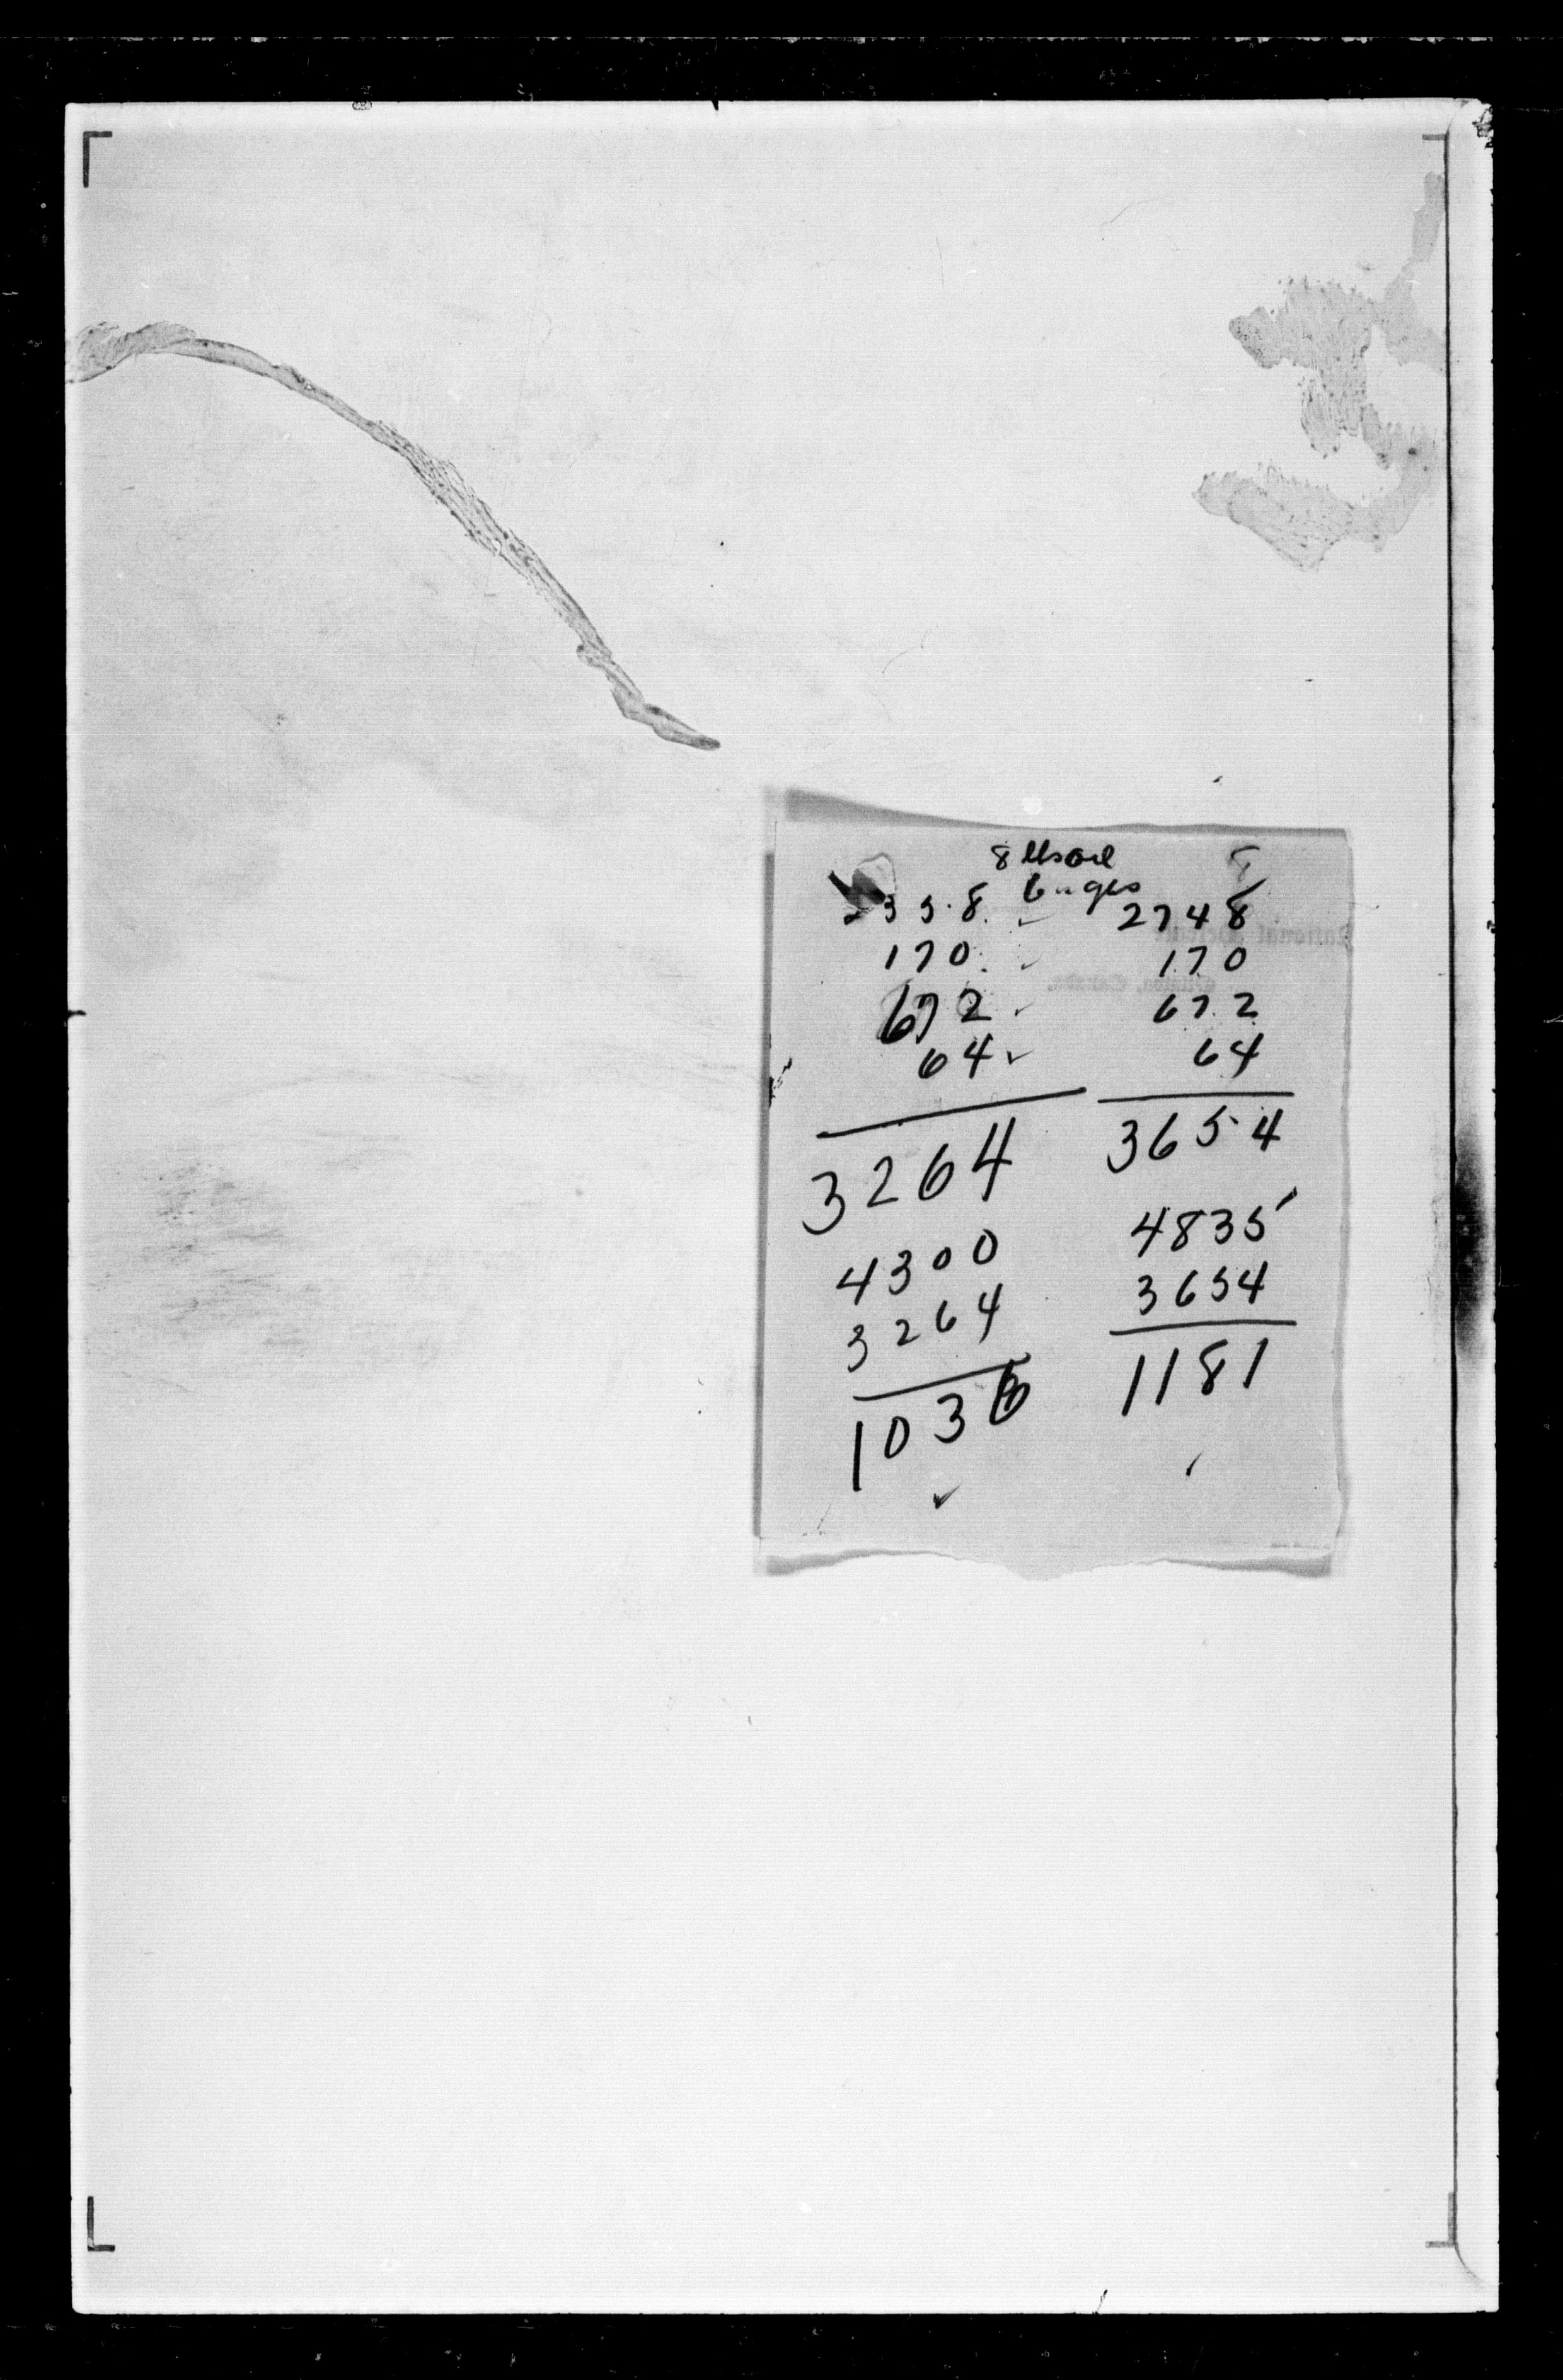 8 lbs oil
2358 2748
170 170
672 672
64 64
3264 3654
4300 4835
3264 3654
1036 1181